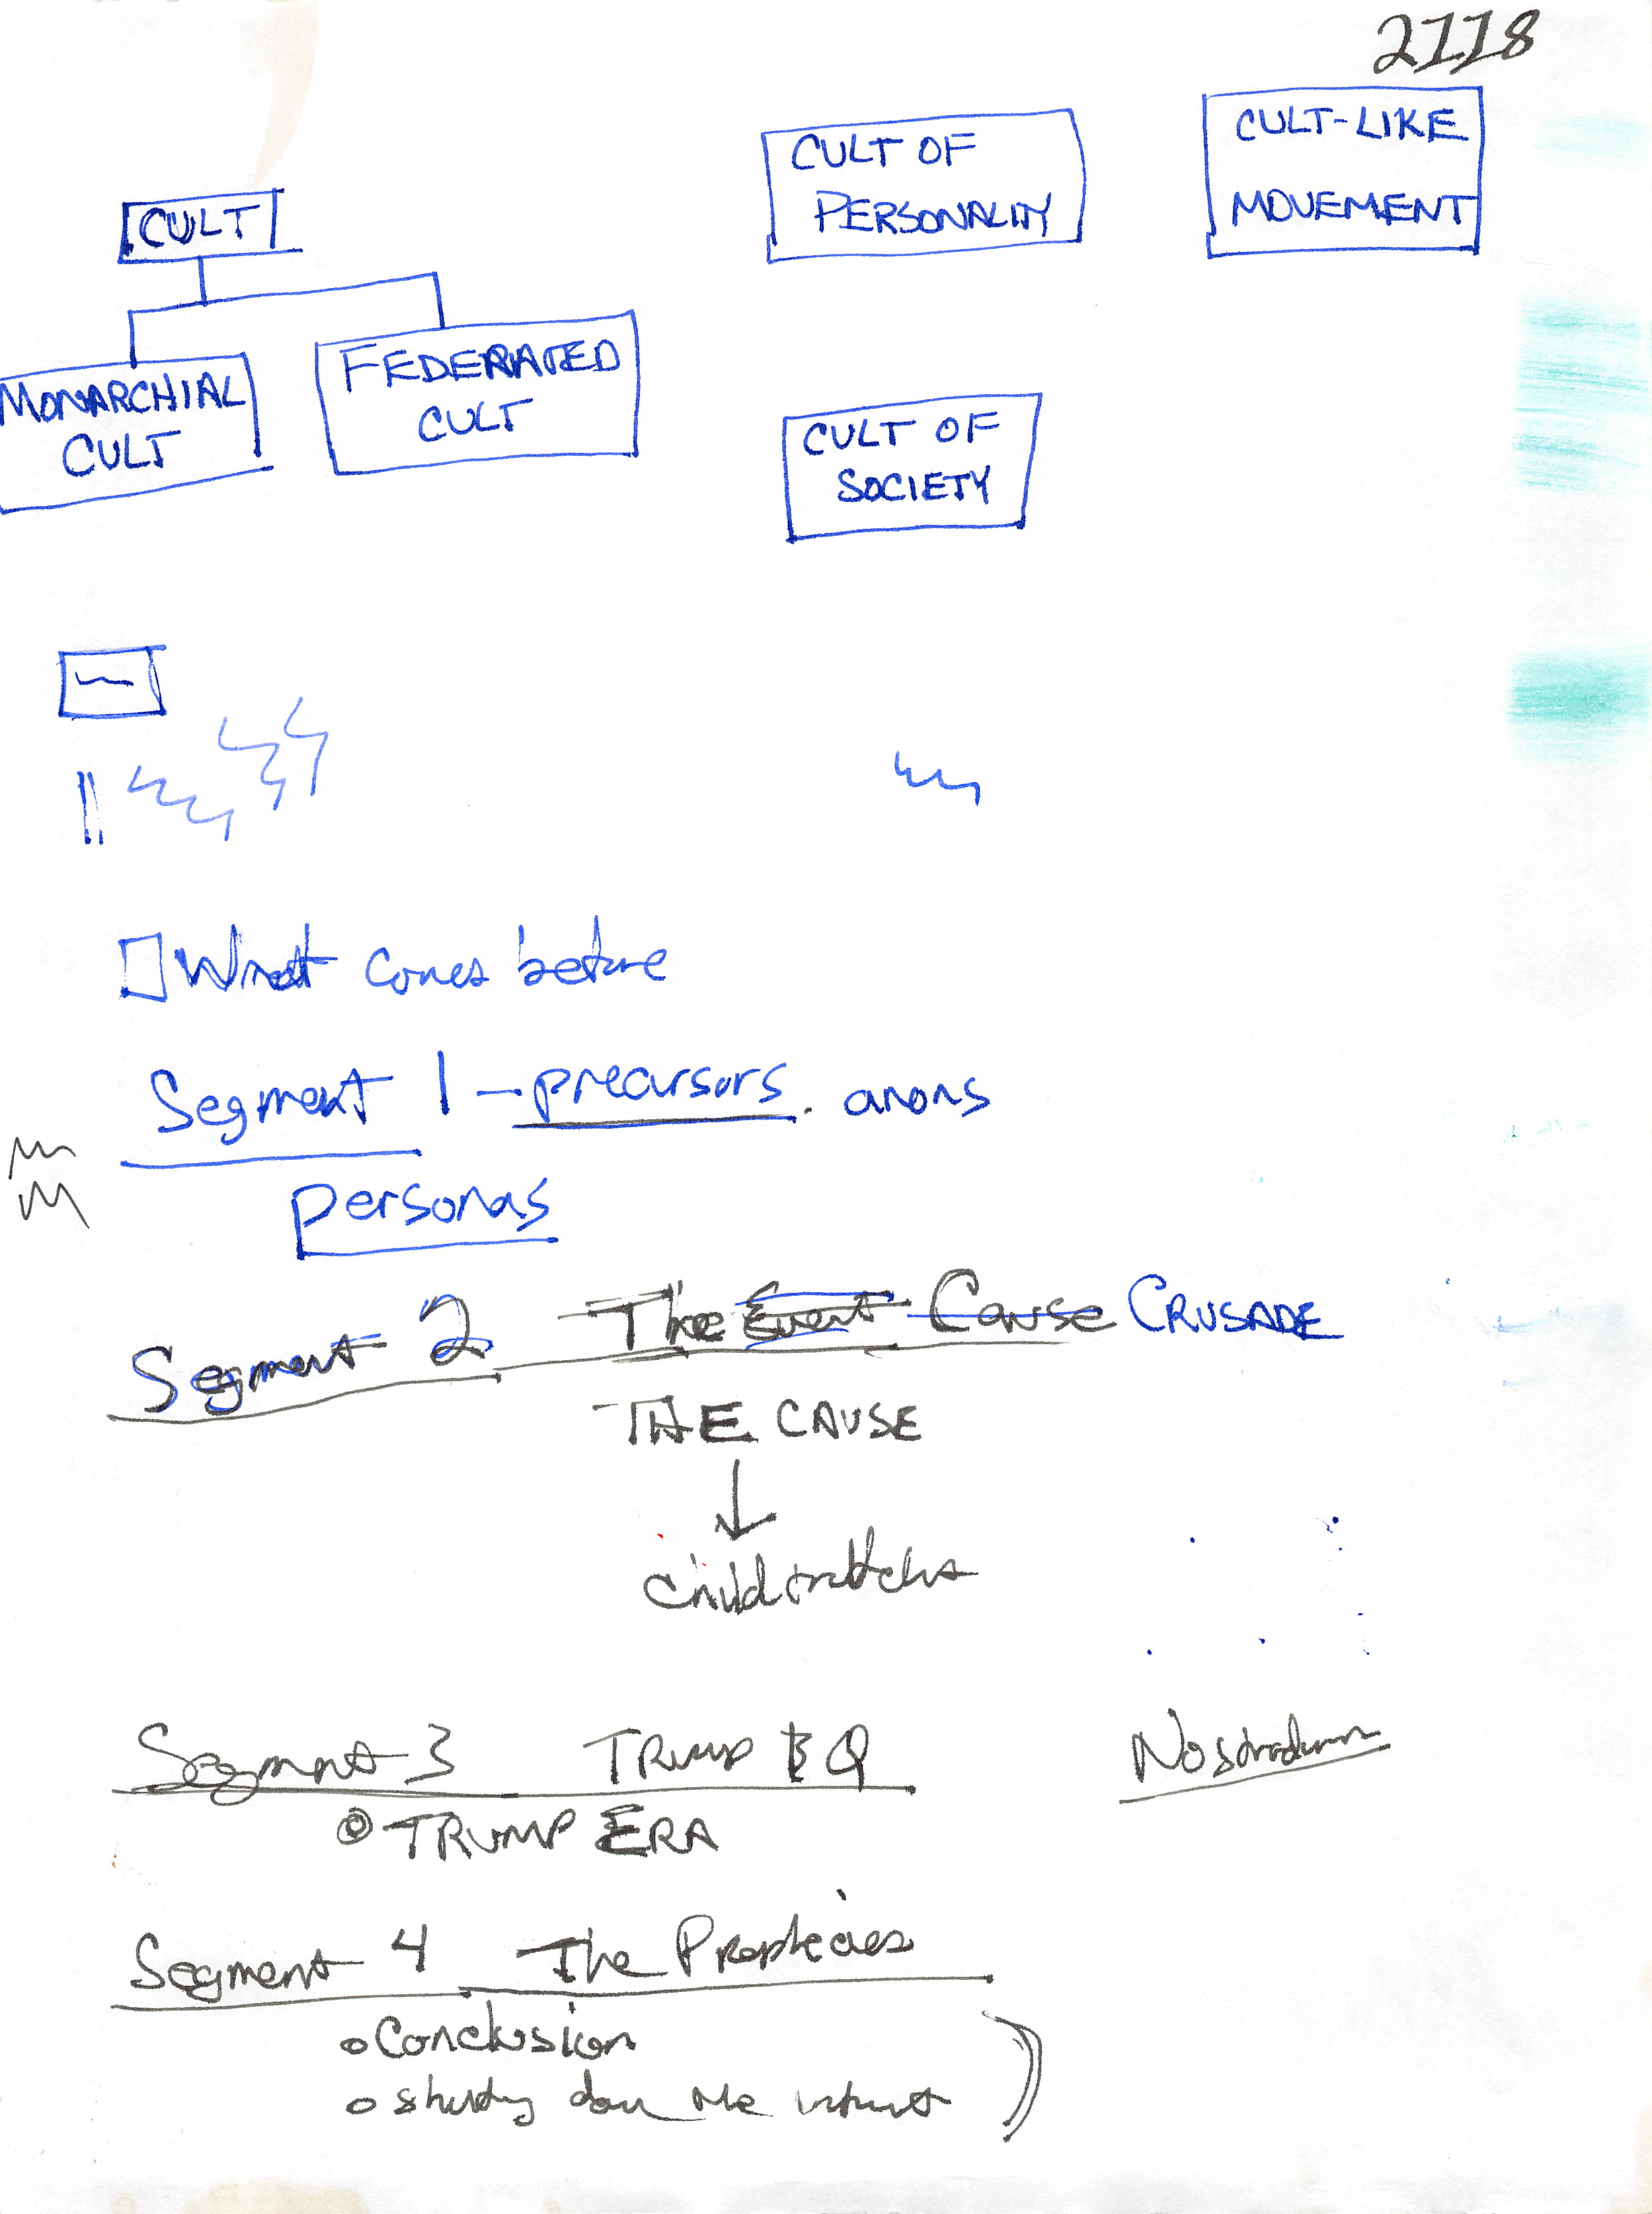 2118
CULT OF
PERSONALITY
CULT-LIKE
MOVEMENT
CULT
MONARCHIAL
CULT
FEDERATED
CULT
CULT OF
SOCIETY
What comes before
Segment 1 - precursors. anons
personas
Segment 2 The Event Cause CRUSADE
THE CAUSE
Segment 3 TRUMP & Q
TRUMP ERA
Segment 4 The Prophecies
Conclusion